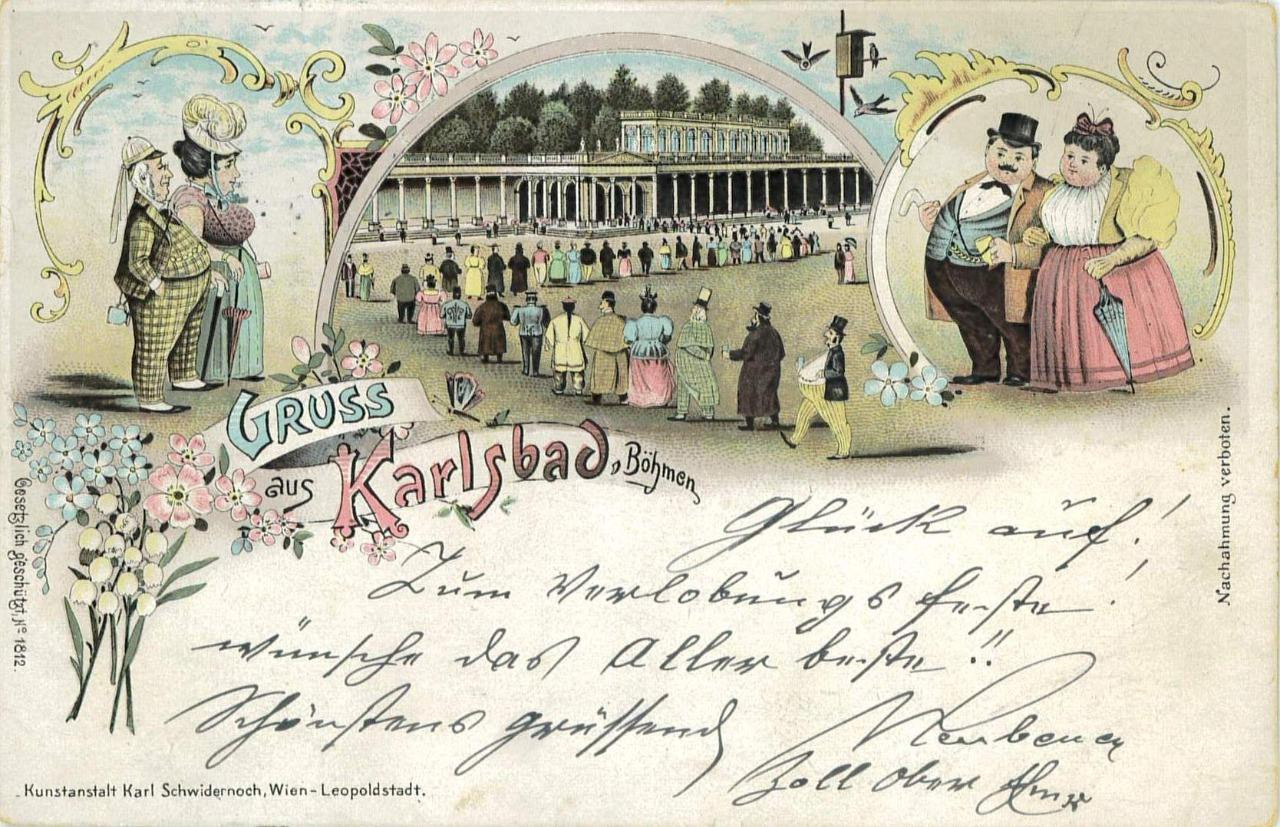 GRUSS
aus Karlsbad, Böhmen
Gesetzlich geschützt, No 1812.
Nachahmung verboten.
Glück auf!
Zum Verlobungs feste!
wünsche das Aller beste!!
Schönstens grüssend
Zoll Ober
Kunstanstalt Karl Schwidernoch, Wien-Leopoldstadt.